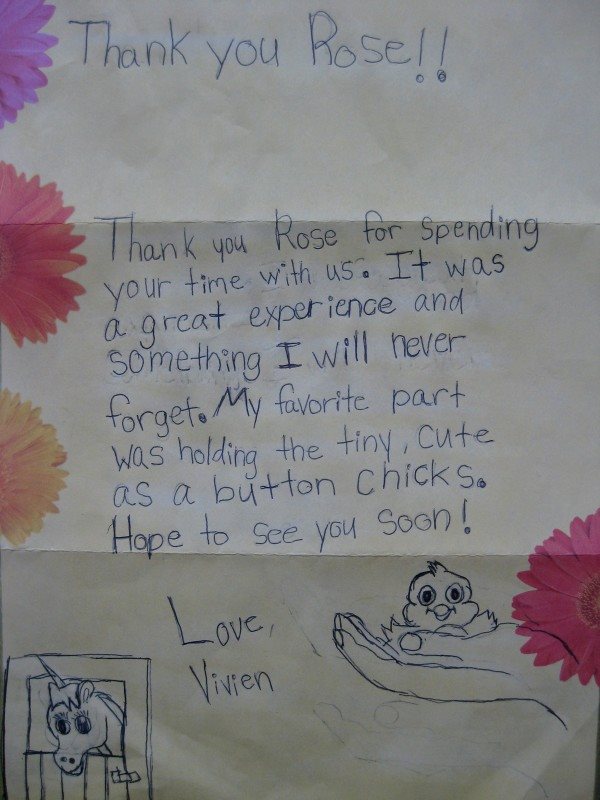 Thank you Rose!!
Thank you Rose for spending
your time with us. It was
a great experience and
something I will never
forget. My favorite part
was holding the tiny, cute
as a button chicks.
Hope to see you soon!
Love,
Vivien